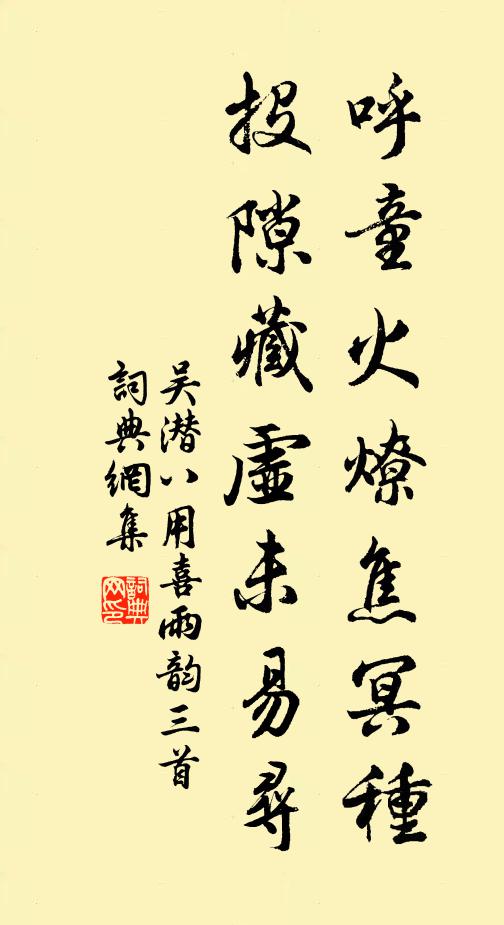 呼童火燎焦冥種
投隙藏虛未易尋
吴潜八用喜雨韵三首
詞典網集
詞典網印